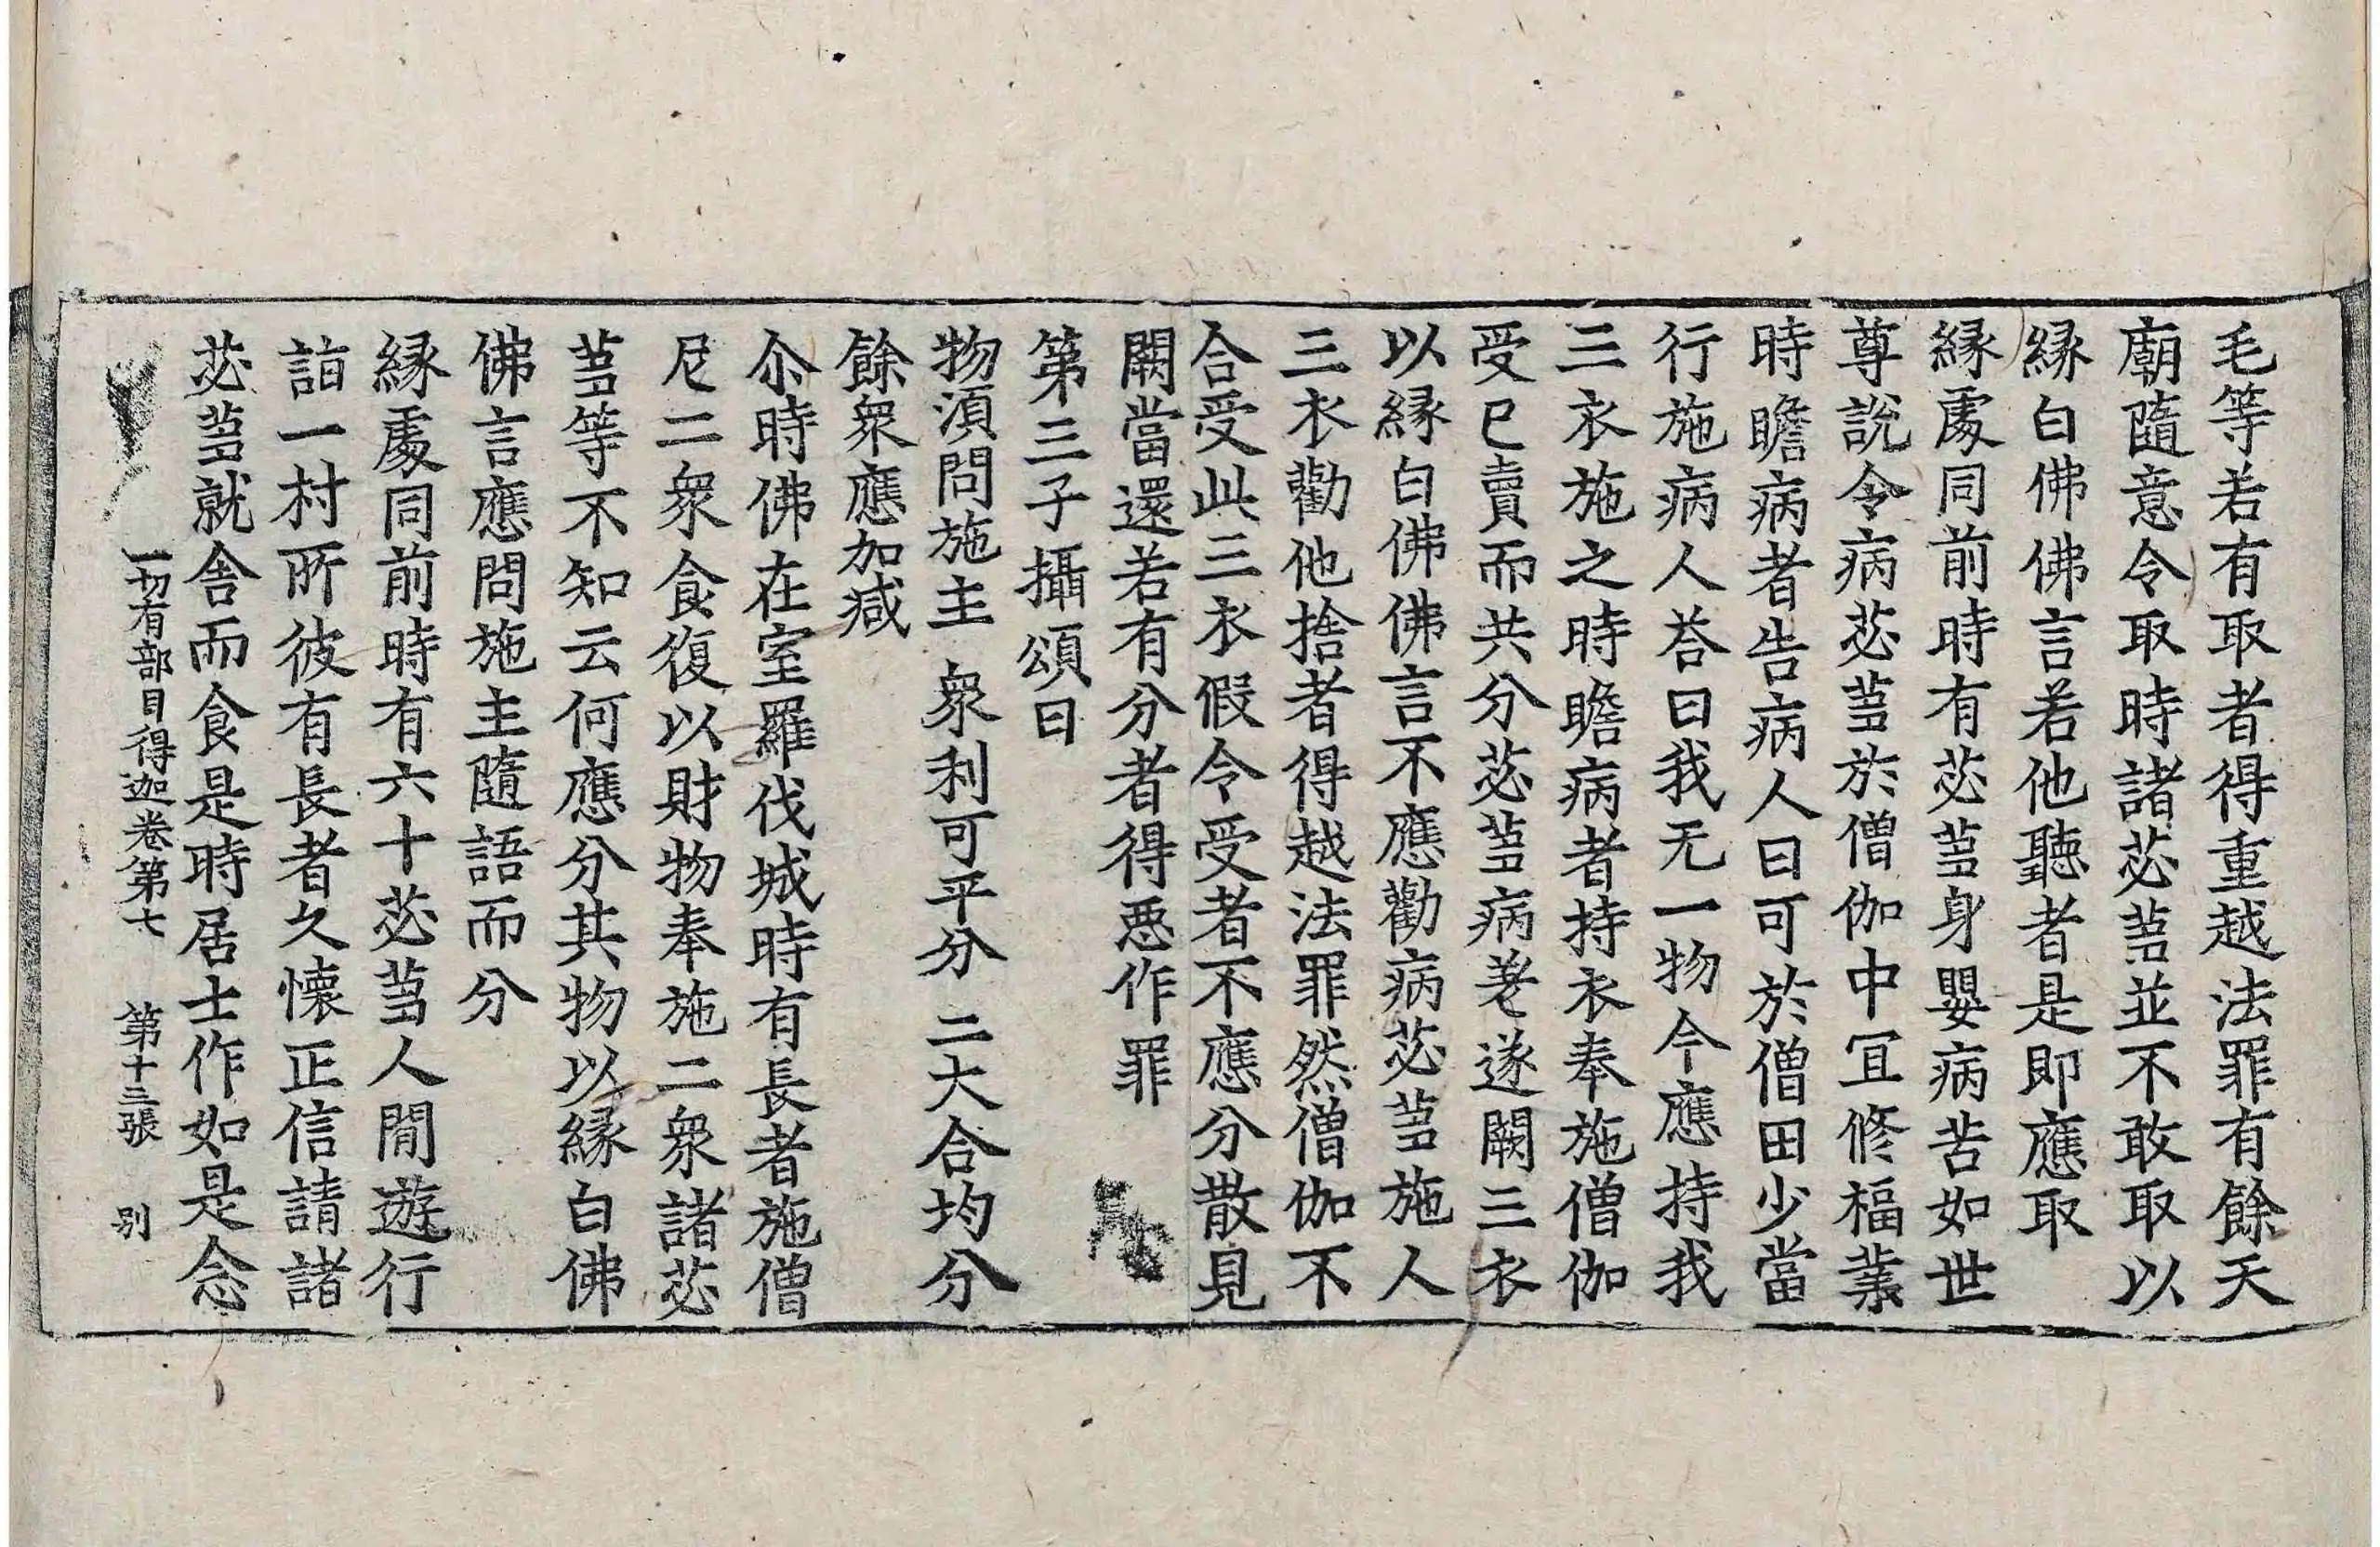 毛等若有取者得重越法罪有餘天
廟隨意令取時諸苾蒭並不敢取以
緣白佛佛言若他聽者是即應取
緣處同前時有苾蒭身嬰病苦如世
尊說令病苾蒭於僧伽中宜修福業
時瞻病者告病人曰可於僧田少當
行施病人荅曰我无一物今應持我
三衣施之時瞻病者持衣奉施僧伽
受已賣而共分苾蒭病差遂闕三衣
以緣白佛佛言不應勸病苾蒭施人
三衣勸他捨者得越法罪然僧伽不
合受此三衣假令受者不應分散見
闕當還若有分者得惡作罪
第三子攝頌曰
物湏問施主　衆利可平分　二大合均分
餘衆應加减
尒時佛在室羅伐城時有長者施僧
尼二衆食復以財物奉施二衆諸苾
蒭等不知云何應分其物以緣白佛
佛言應問施主隨語而分
緣處同前時有六十苾蒭人間遊行
詣一村所彼有長者久懷正信請諸
苾蒭就舍而食是時居士作如是念
一切有部目得迦卷第七　第十三張　别